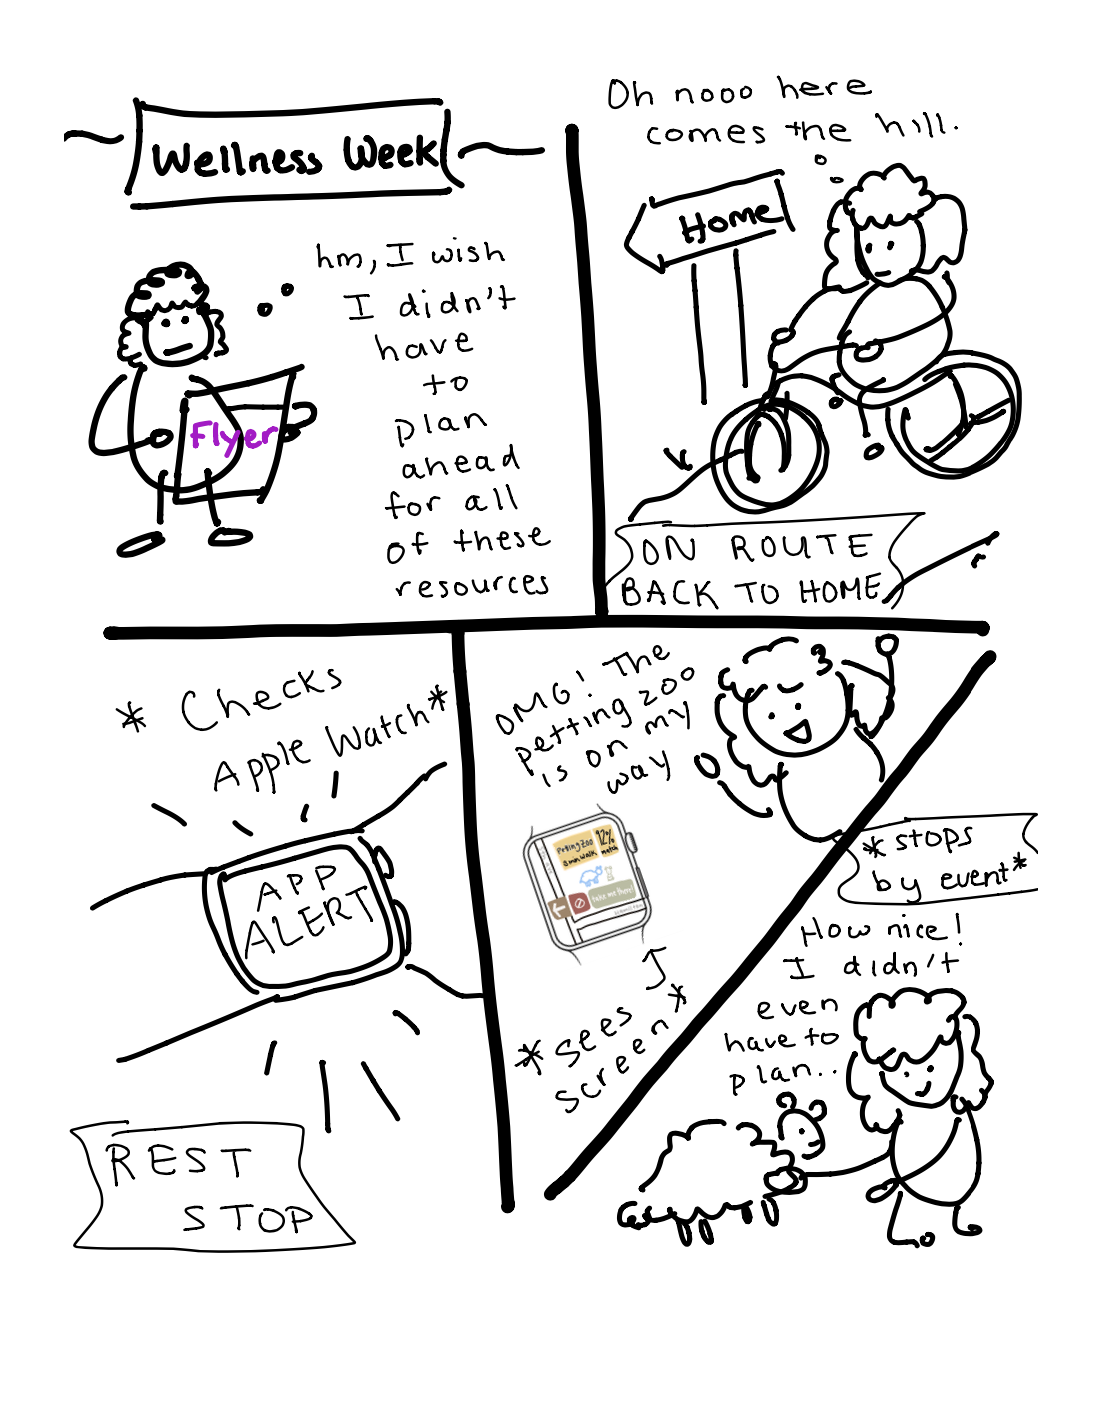 Wellness Week
hm, I wish
I didn't
have
to
plan
ahead
for all
of these
resources
Flyer
Oh nooo here
comes the hill.
Home
ON ROUTE
BACK TO HOME
* Checks
Apple Watch*
APP
ALERT
REST
STOP
OMG! The
petting zoo
is on my
way
Petting Zoo
5 min walk
92%
match
take me there!
*sees
screen*
*stops
by event*
How nice!
I didn't
even
have to
plan..